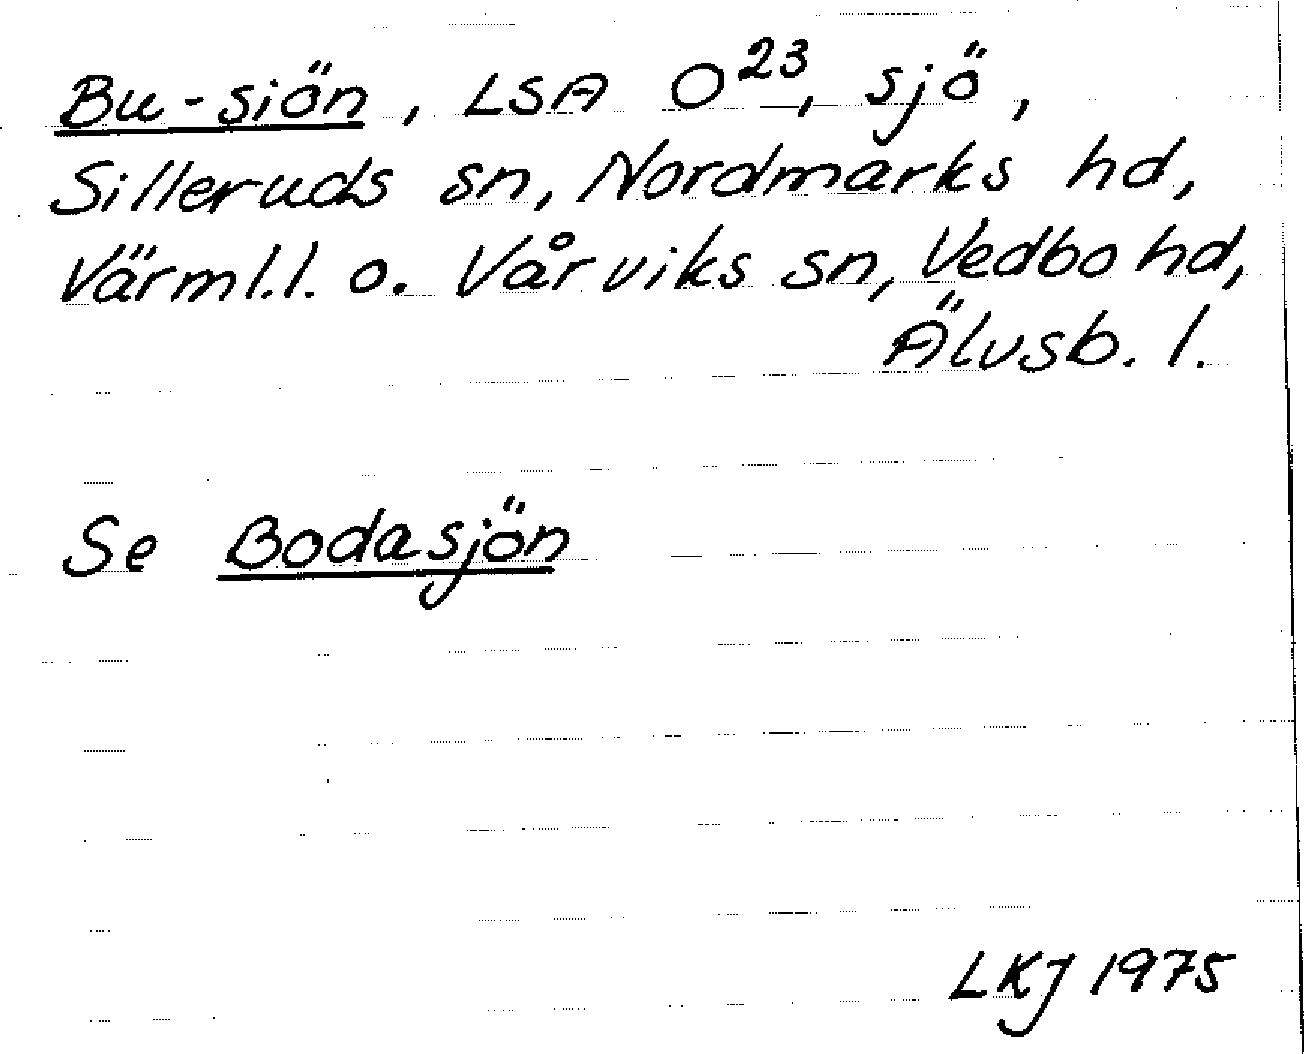 Bu-siön, LSA O²³, sjö,
Silleruds sn, Nordmarks hd,
Värml.l. o. Vårviks sn, Vedbo hd,
Älvsb. l.
Se Bodasjön
LKJ 1975